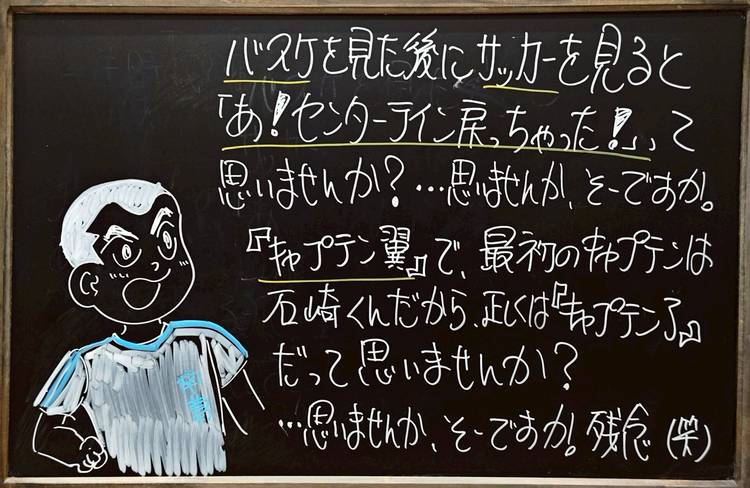 バスケを見た後に、サッカーを見ると
「あ！センターライン戻っちゃった！」って
思いませんか？…思いませんか、そーですか。
『キャプテン翼』で、最初のキャプテンは
石崎くんだから、正しくは『キャプテン了』
だって思いませんか？
…思いませんか、そーですか！残念（笑）
南葛